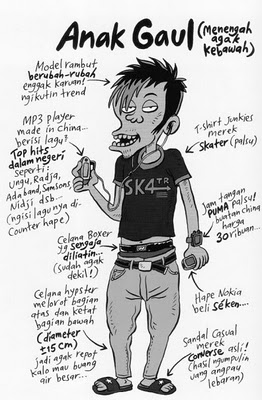 Anak Gaul
(Menengah
agak
kebawah)
Model rambut
berubah-rubah
enggak karuan!
ngikutin trend
MP3 player
made in China...
berisi lagu2
Top hits
dalam negeri
seperti:
Ungu, Radja,
Ada band, Samsons,
Nidji dsb...
(ngisi lagunya di
Counter hape)
T-shirt junkies
merek
Skater (palsu)
SK4TR
Jam tangan
PUMA palsu!
buatan China
harga
30 ribuan...
Celana Boxer
yg sengaja
diliatin...
(sudah agak
dekil!)
Celana hypster
melorot bagian
atas dan ketat
bagian bawah
(diameter
±15 cm)
jadi agak repot
kalo mau buang
air besar...
Hape Nokia
beli seken...
Sandal Casual
merek
Converse asli!
(hasil ngumpulin
uang angpau
lebaran)